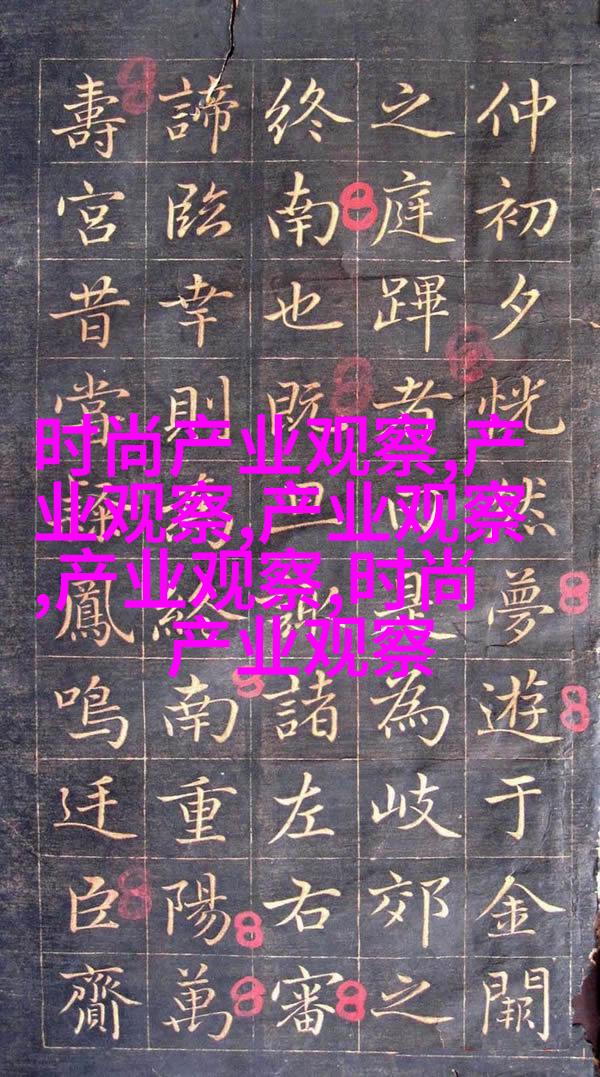 时尚产业观察,产
业观察,产业观察
,产业观察,时尚
产业观察
仲初夕恍然夢遊于金闕
之庭蹕者為岐郊之
終南也既諸左右審
諦臨幸則給南重陽萬
壽宮昔當鳳鳴迁臣齎